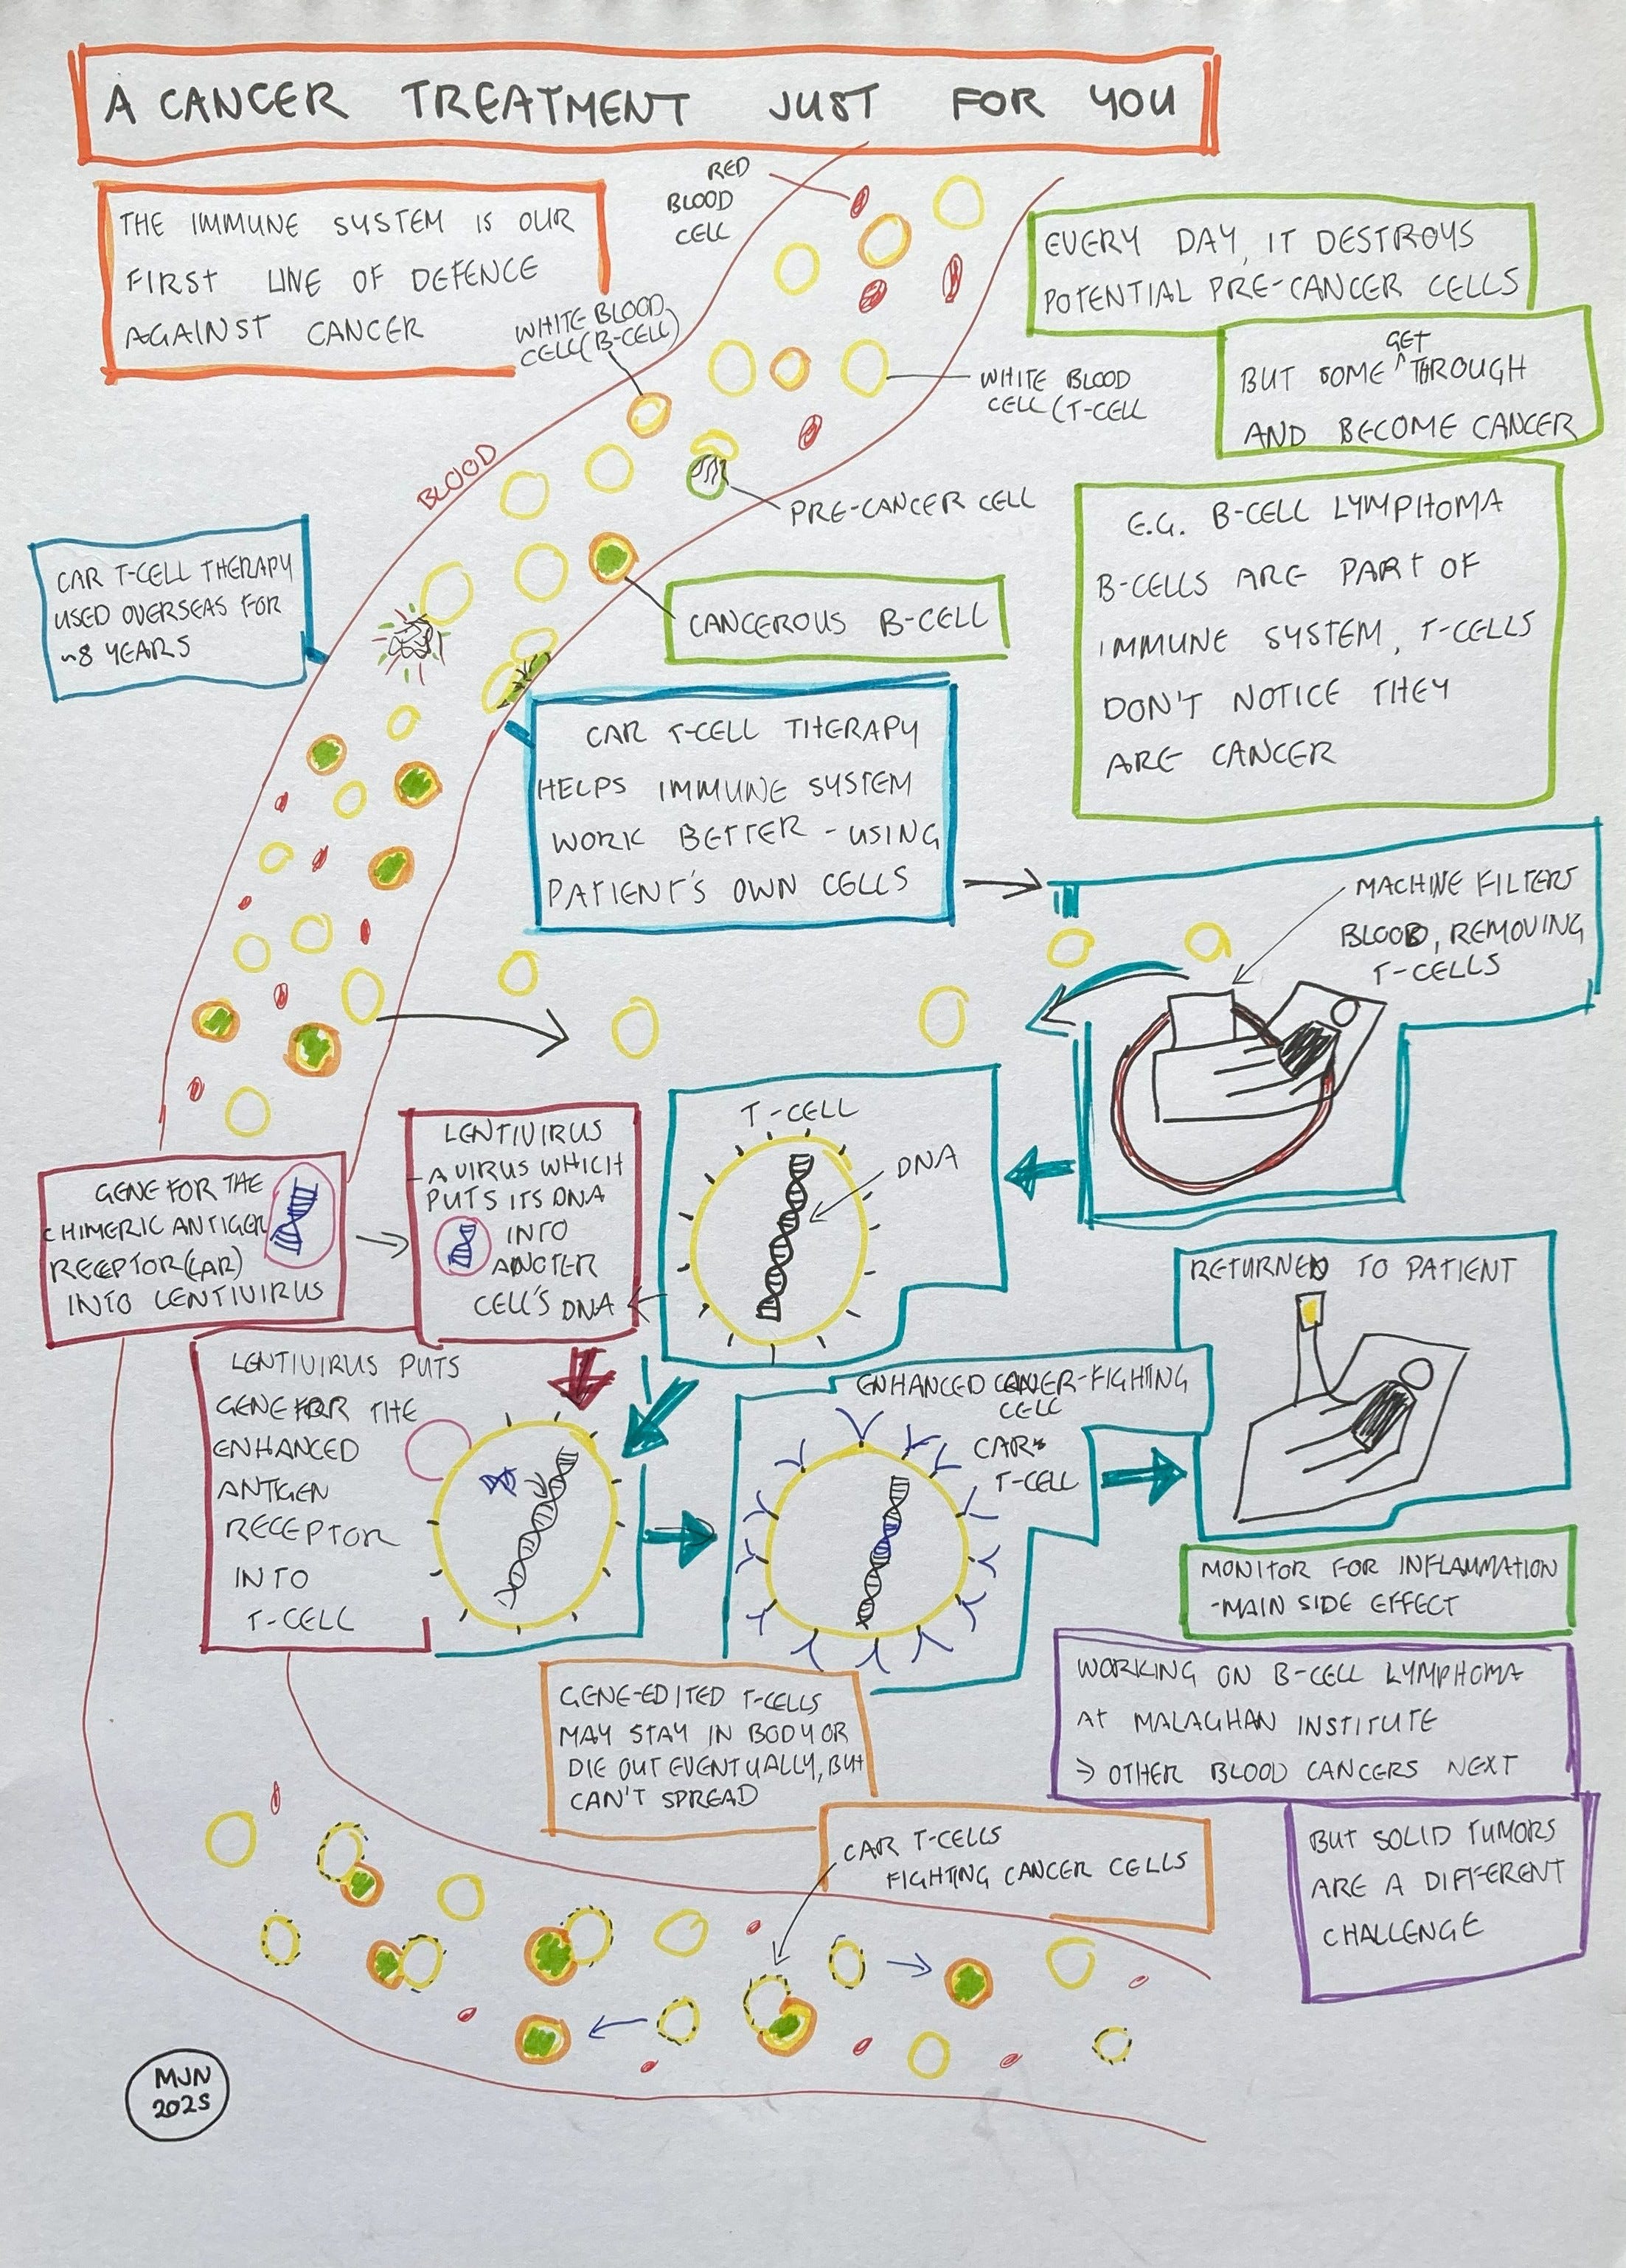 A CANCER TREATMENT JUST FOR YOU
THE IMMUNE SYSTEM IS OUR
FIRST LINE OF DEFENCE
AGAINST CANCER
RED
BLOOD
CELL
WHITE BLOOD
CELL (B-CELL)
EVERY DAY, IT DESTROYS
POTENTIAL PRE-CANCER CELLS
BUT SOME GET THROUGH
AND BECOME CANCER
WHITE BLOOD
CELL (T-CELL
BLOOD
PRE-CANCER CELL
E.G. B-CELL LYMPHOMA
B-CELLS ARE PART OF
IMMUNE SYSTEM, T-CELLS
DON'T NOTICE THEY
ARE CANCER
CAR T-CELL THERAPY
USED OVERSEAS FOR
~8 YEARS
CANCEROUS B-CELL
CAR T-CELL THERAPY
HELPS IMMUNE SYSTEM
WORK BETTER - USING
PATIENT'S OWN CELLS
MACHINE FILTERS
BLOOD, REMOVING
T-CELLS
T-CELL
DNA
GENE FOR THE
CHIMERIC ANTIGEN
RECEPTOR (CAR)
INTO LENTIVIRUS
LENTIVIRUS
- A VIRUS WHICH
PUTS ITS DNA
INTO
ANOTER
CELL'S DNA
LENTIVIRUS PUTS
GENE FOR THE
ENHANCED
ANTIGEN
RECEPTOR
INTO
T-CELL
ENHANCED CANCER-FIGHTING
CELL
CAR
T-CELL
RETURNED TO PATIENT
MONITOR FOR INFLAMMATION
-MAIN SIDE EFFECT
GENE-EDITED T-CELLS
MAY STAY IN BODY OR
DIE OUT EVENTUALLY, BUT
CAN'T SPREAD
WORKING ON B-CELL LYMPHOMA
AT MALAGHAN INSTITUTE
→ OTHER BLOOD CANCERS NEXT
BUT SOLID TUMORS
ARE A DIFFERENT
CHALLENGE
CAR T-CELLS
FIGHTING CANCER CELLS
MJN
2025